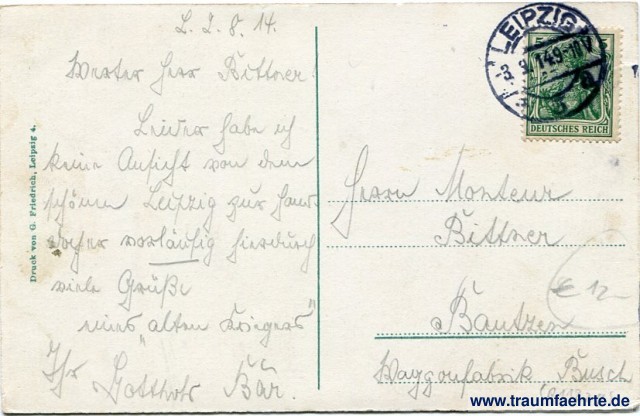 L. 2. 8. 14.
Werter Herr Bittner!
Leider habe ich
keine Ansicht von dem
schönen Leipzig zur Hand
daher vorläufig hierdurch
viele Grüße
eines "alten Kriegers"
Ihr Gotthold Bär.
Druck von G. Friedrich, Leipzig 4.
LEIPZIG
DEUTSCHES REICH
Herrn Monteur
Bittner
Bautzen
Waggonfabrik Busch
€ 12,-
www.traumfaehrte.de